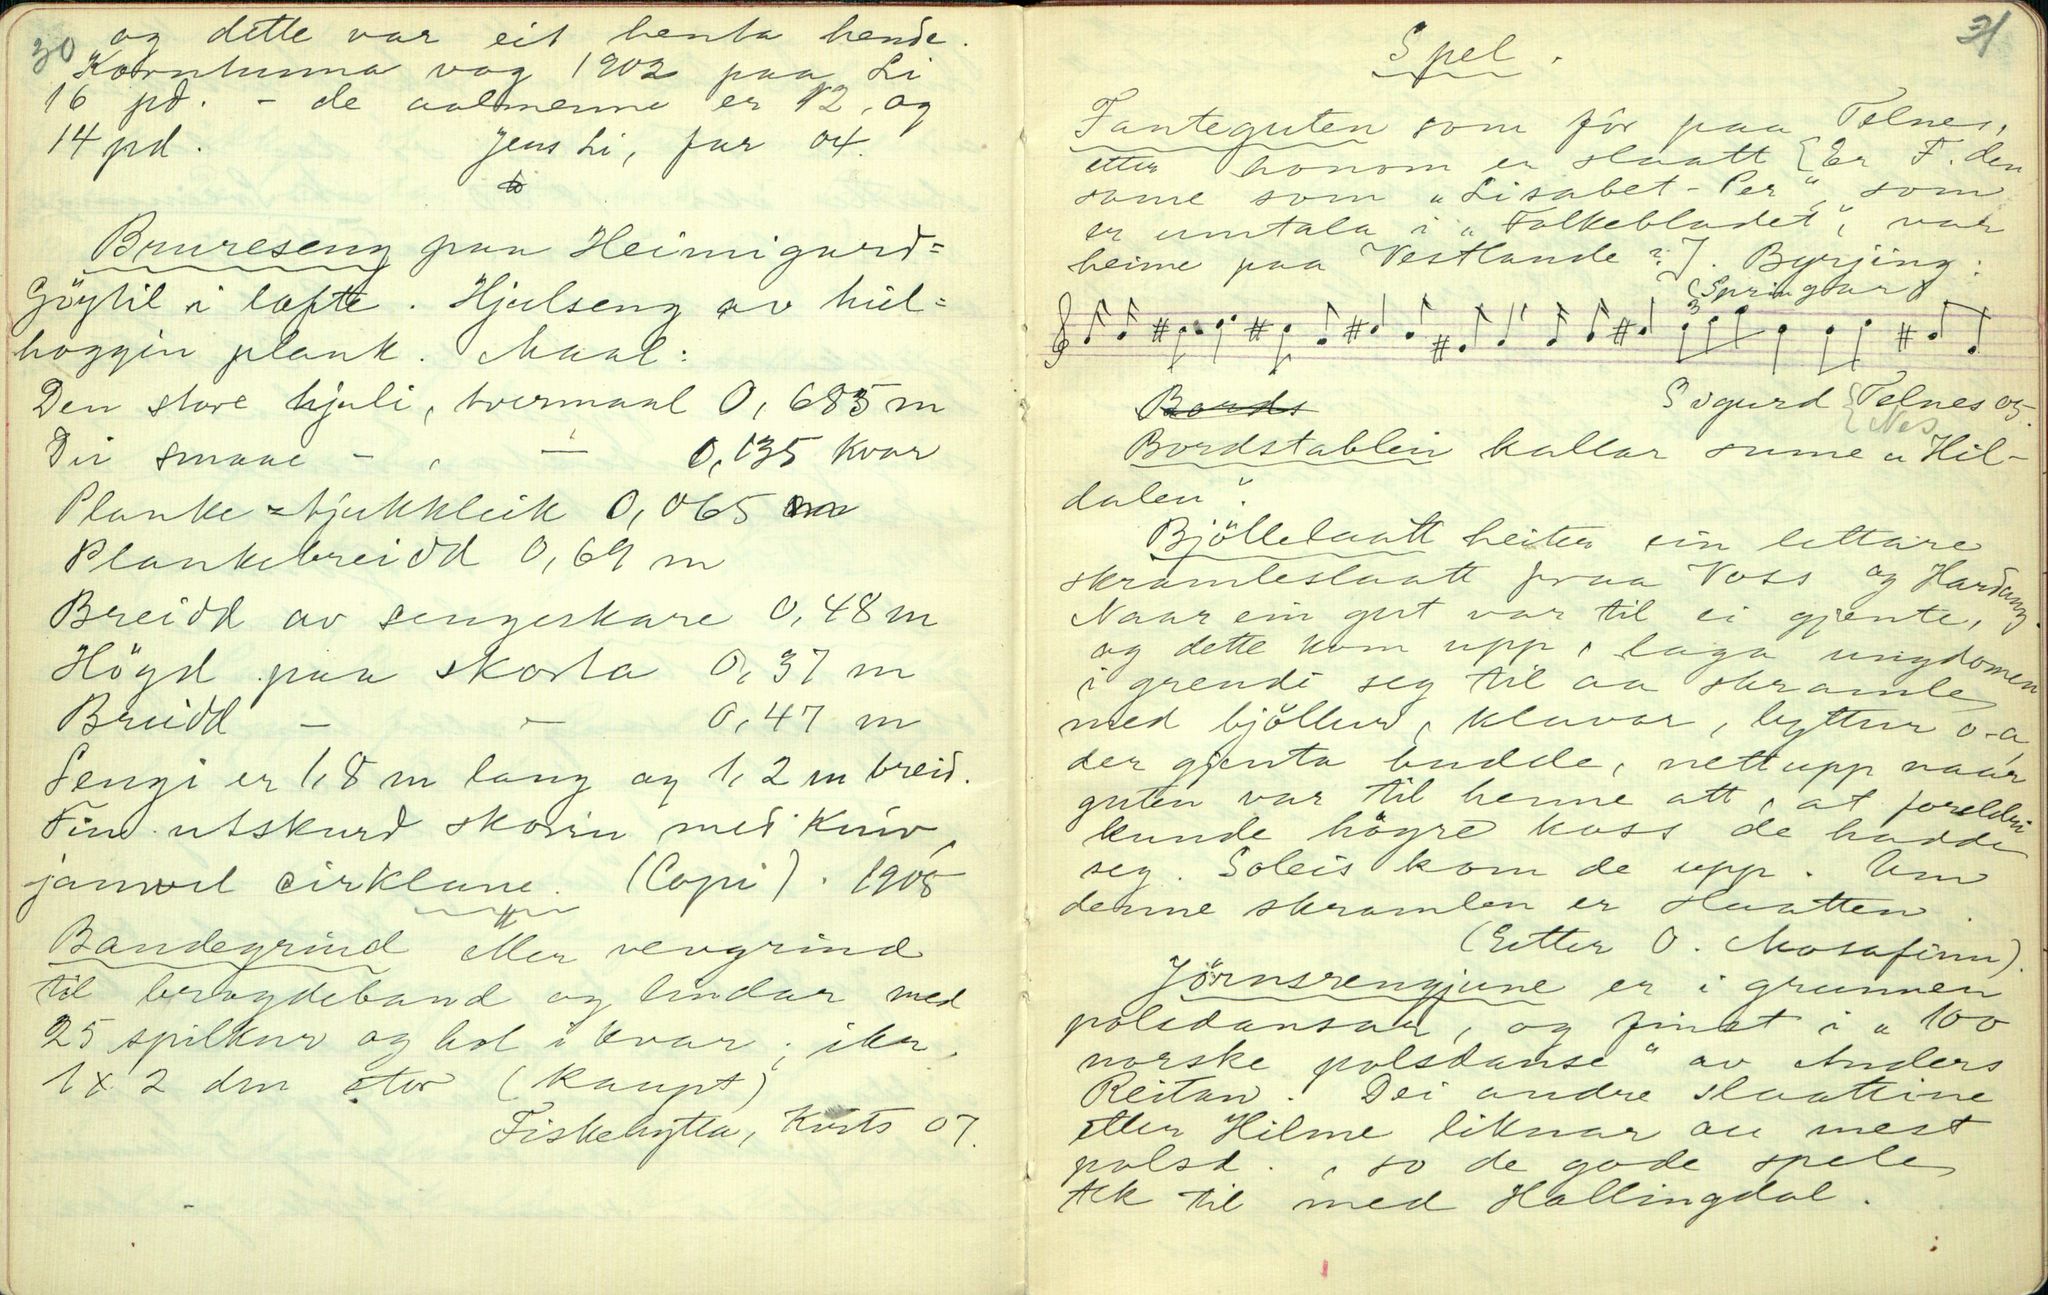 30
og dette var eit henta hende.
Korntunna vog 1902 paa Li
16 pd. - de aalmenne er 12 og
14 pd. Jens Li, far 04.
Brureseng paa Heimigard=
Göytil i lofte. Hjulseng av hül=
hoggin plank. Maal:
Den store hjuli, tvermaal 0,685 m
Dei smaae - , - 0,135 kvar
Planke=tjukkleik 0,065 m
Plankebreidd 0,69 m
Breidd av sengeskare 0,48 m
Högd paa skorta 0,37 m
Breidd - - 0,47 m
Sengi er 1,8 m lang og 1,2 m breid.
Fin utskurd skorin med kniv,
jamvel cirklane. (Copi). 1905
Bandegrind etter vevgrind
til brogdeband og lindar med
25 spilkur og hol i kvar; ikr.
1 x 2 dm stor (kaupt)
Fiskehytta, Kvits 07.
31
Spel.
Fanteguten som för paa Telnes,
etter honom er slaatt [Er F. den
same som "Lisabet-Per", som
er umtala i "Folkebladet", var
heime paa Vestlande?]. Byrjing:
(Springar)
3
Bords Svgurd Telnes 05.
Nes
Bordstablin kallar sume "Hil-
dalen".
Bjöllelaatt heiter ein lettare
skramleslaatt fraa Voss og Hardang.
Naar ein gut var til ei gjente,
og dette kom upp, laga ungdomen
i grendi seg til aa skramle
med bjöllur, klavar, lyttur o-a,
der gjenta budde, nett upp naar
guten var til henne att, at foreldri
kunde högre koss de hadde
seg. Soleis kom de upp. Um
denne skramlen er slaatten.
(Etter O. Mosafinn).
Jörnsrengjune er i grunnen
polsdansar, og finst i "100
norske polsdanse" av Anders
Reitan. Dei andre slaattine
etter Hilme liknar au mest
polsd., so de gode spele
tek til med Hallingdal.